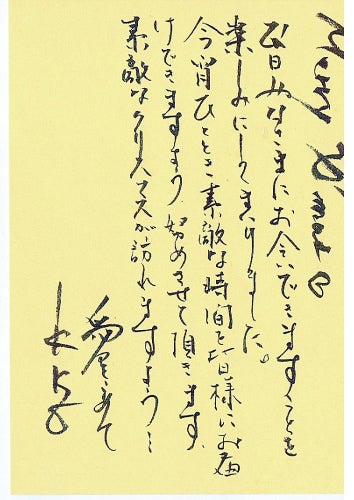 Merry X'mas
今日みなさまにお会いできますことを
楽しみにしてまいりました。
今宵ひととき素敵な時間を皆様にお届
けできますよう努めさせて頂きます。
素敵なクリスマスが訪れますよう…
愛をこめて